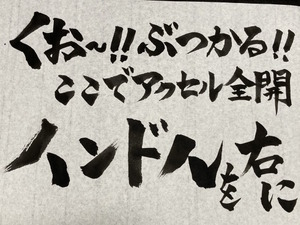 くお～!!ぶつかる!!
ここでアクセル全開
ハンドルを右に